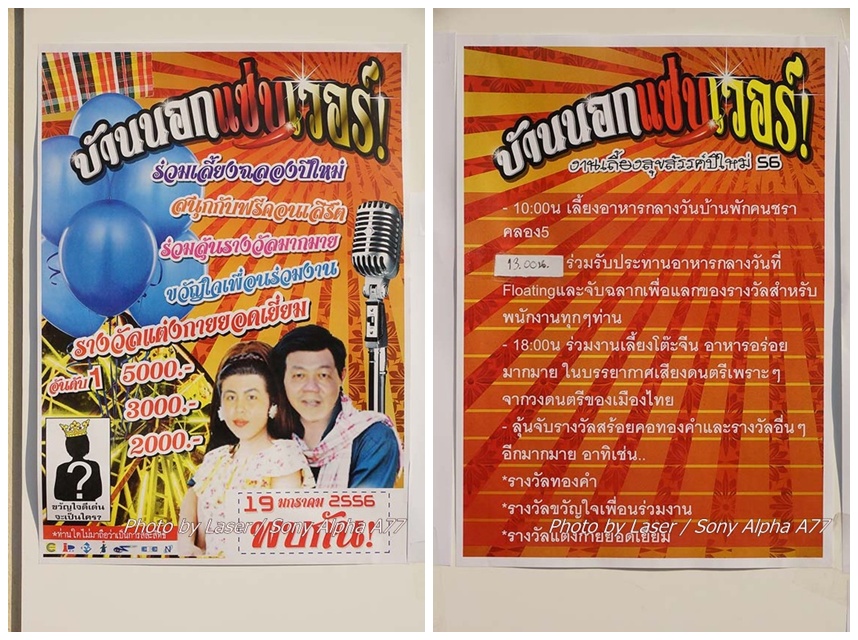 บ้านนอกแซ่บเวอร์!
ร่วมเลี้ยงฉลองปีใหม่
สนุกกับฟรีคอนเสิร์ต
ร่วมลุ้นรางวัลมากมาย
ขวัญใจเพื่อนร่วมงาน
รางวัลแต่งกายยอดเยี่ยม
อันดับ 1 5000.-
3000.-
2000.-
?
ขวัญใจดีเด่น
จะเป็นใคร?
19 มกราคม 2556
พบกัน!
*ท่านใดไม่มาถือว่าเป็นการสละสิทธิ์
Photo by Laser / Sony Alpha A77
บ้านนอกแซ่บเวอร์!
งานเลี้ยงสุขสวรรค์ปีใหม่ 56
- 10:00น เลี้ยงอาหารกลางวันบ้านพักคนชรา
คลอง5
13.00น. ร่วมรับประทานอาหารกลางวันที่
Floatingและจับฉลากเพื่อแลกของรางวัลสำหรับ
พนักงานทุกๆท่าน
- 18:00น ร่วมงานเลี้ยงโต๊ะจีน อาหารอร่อย
มากมาย ในบรรยากาศเสียงดนตรีเพราะๆ
จากวงดนตรีของเมืองไทย
- ลุ้นจับรางวัลสร้อยคอทองคำและรางวัลอื่นๆ
อีกมากมาย อาทิเช่น..
*รางวัลทองคำ
*รางวัลขวัญใจเพื่อนร่วมงาน
*รางวัลแต่งกายยอดเยี่ยม
Photo by Laser / Sony Alpha A77